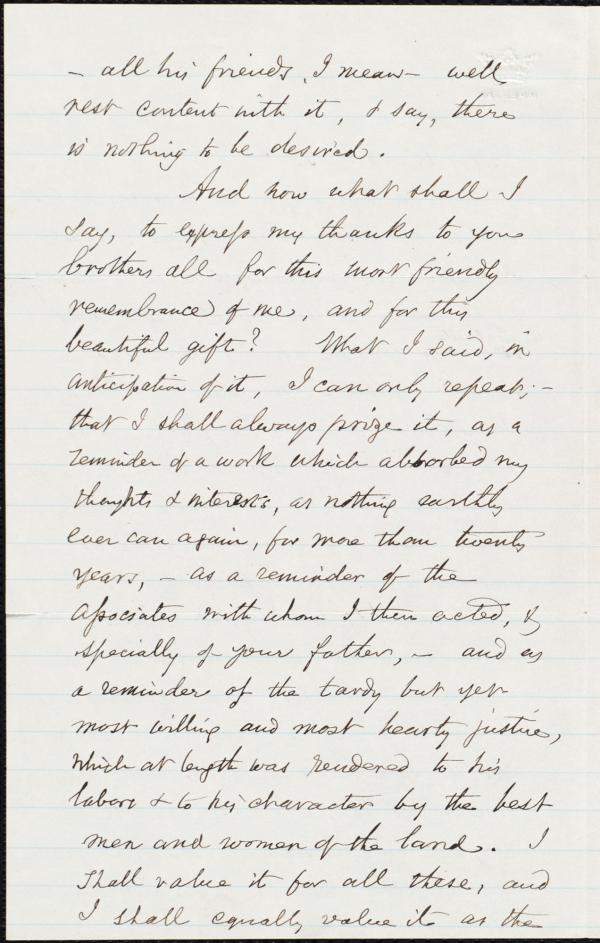 – all his friends, I mean – well
rest content with it, & say, there
is nothing to be desired.
And now what shall I
say, to express my thanks to you
brothers all for this most friendly
remembrance of me, and for this
beautiful gift? What I said, in
anticipation of it, I can only repeat; –
that I shall always prize it, as a
reminder of a work which absorbed my
thoughts & interests, as nothing earthly
ever can again, for more than twenty
years, – as a reminder of the
associates with whom I then acted, &
specially of your father, – and as
a reminder of the tardy but yet
most willing and most hearty justice,
which at length was rendered to his
labors & to his character by the best
men and women of the land. I
shall value it for all these, and
I shall equally value it as the